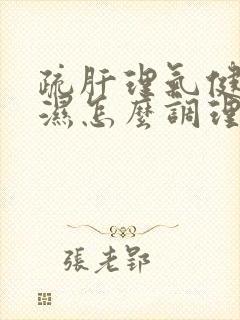 疏肝理氣健
濕怎麼調理
張老郢